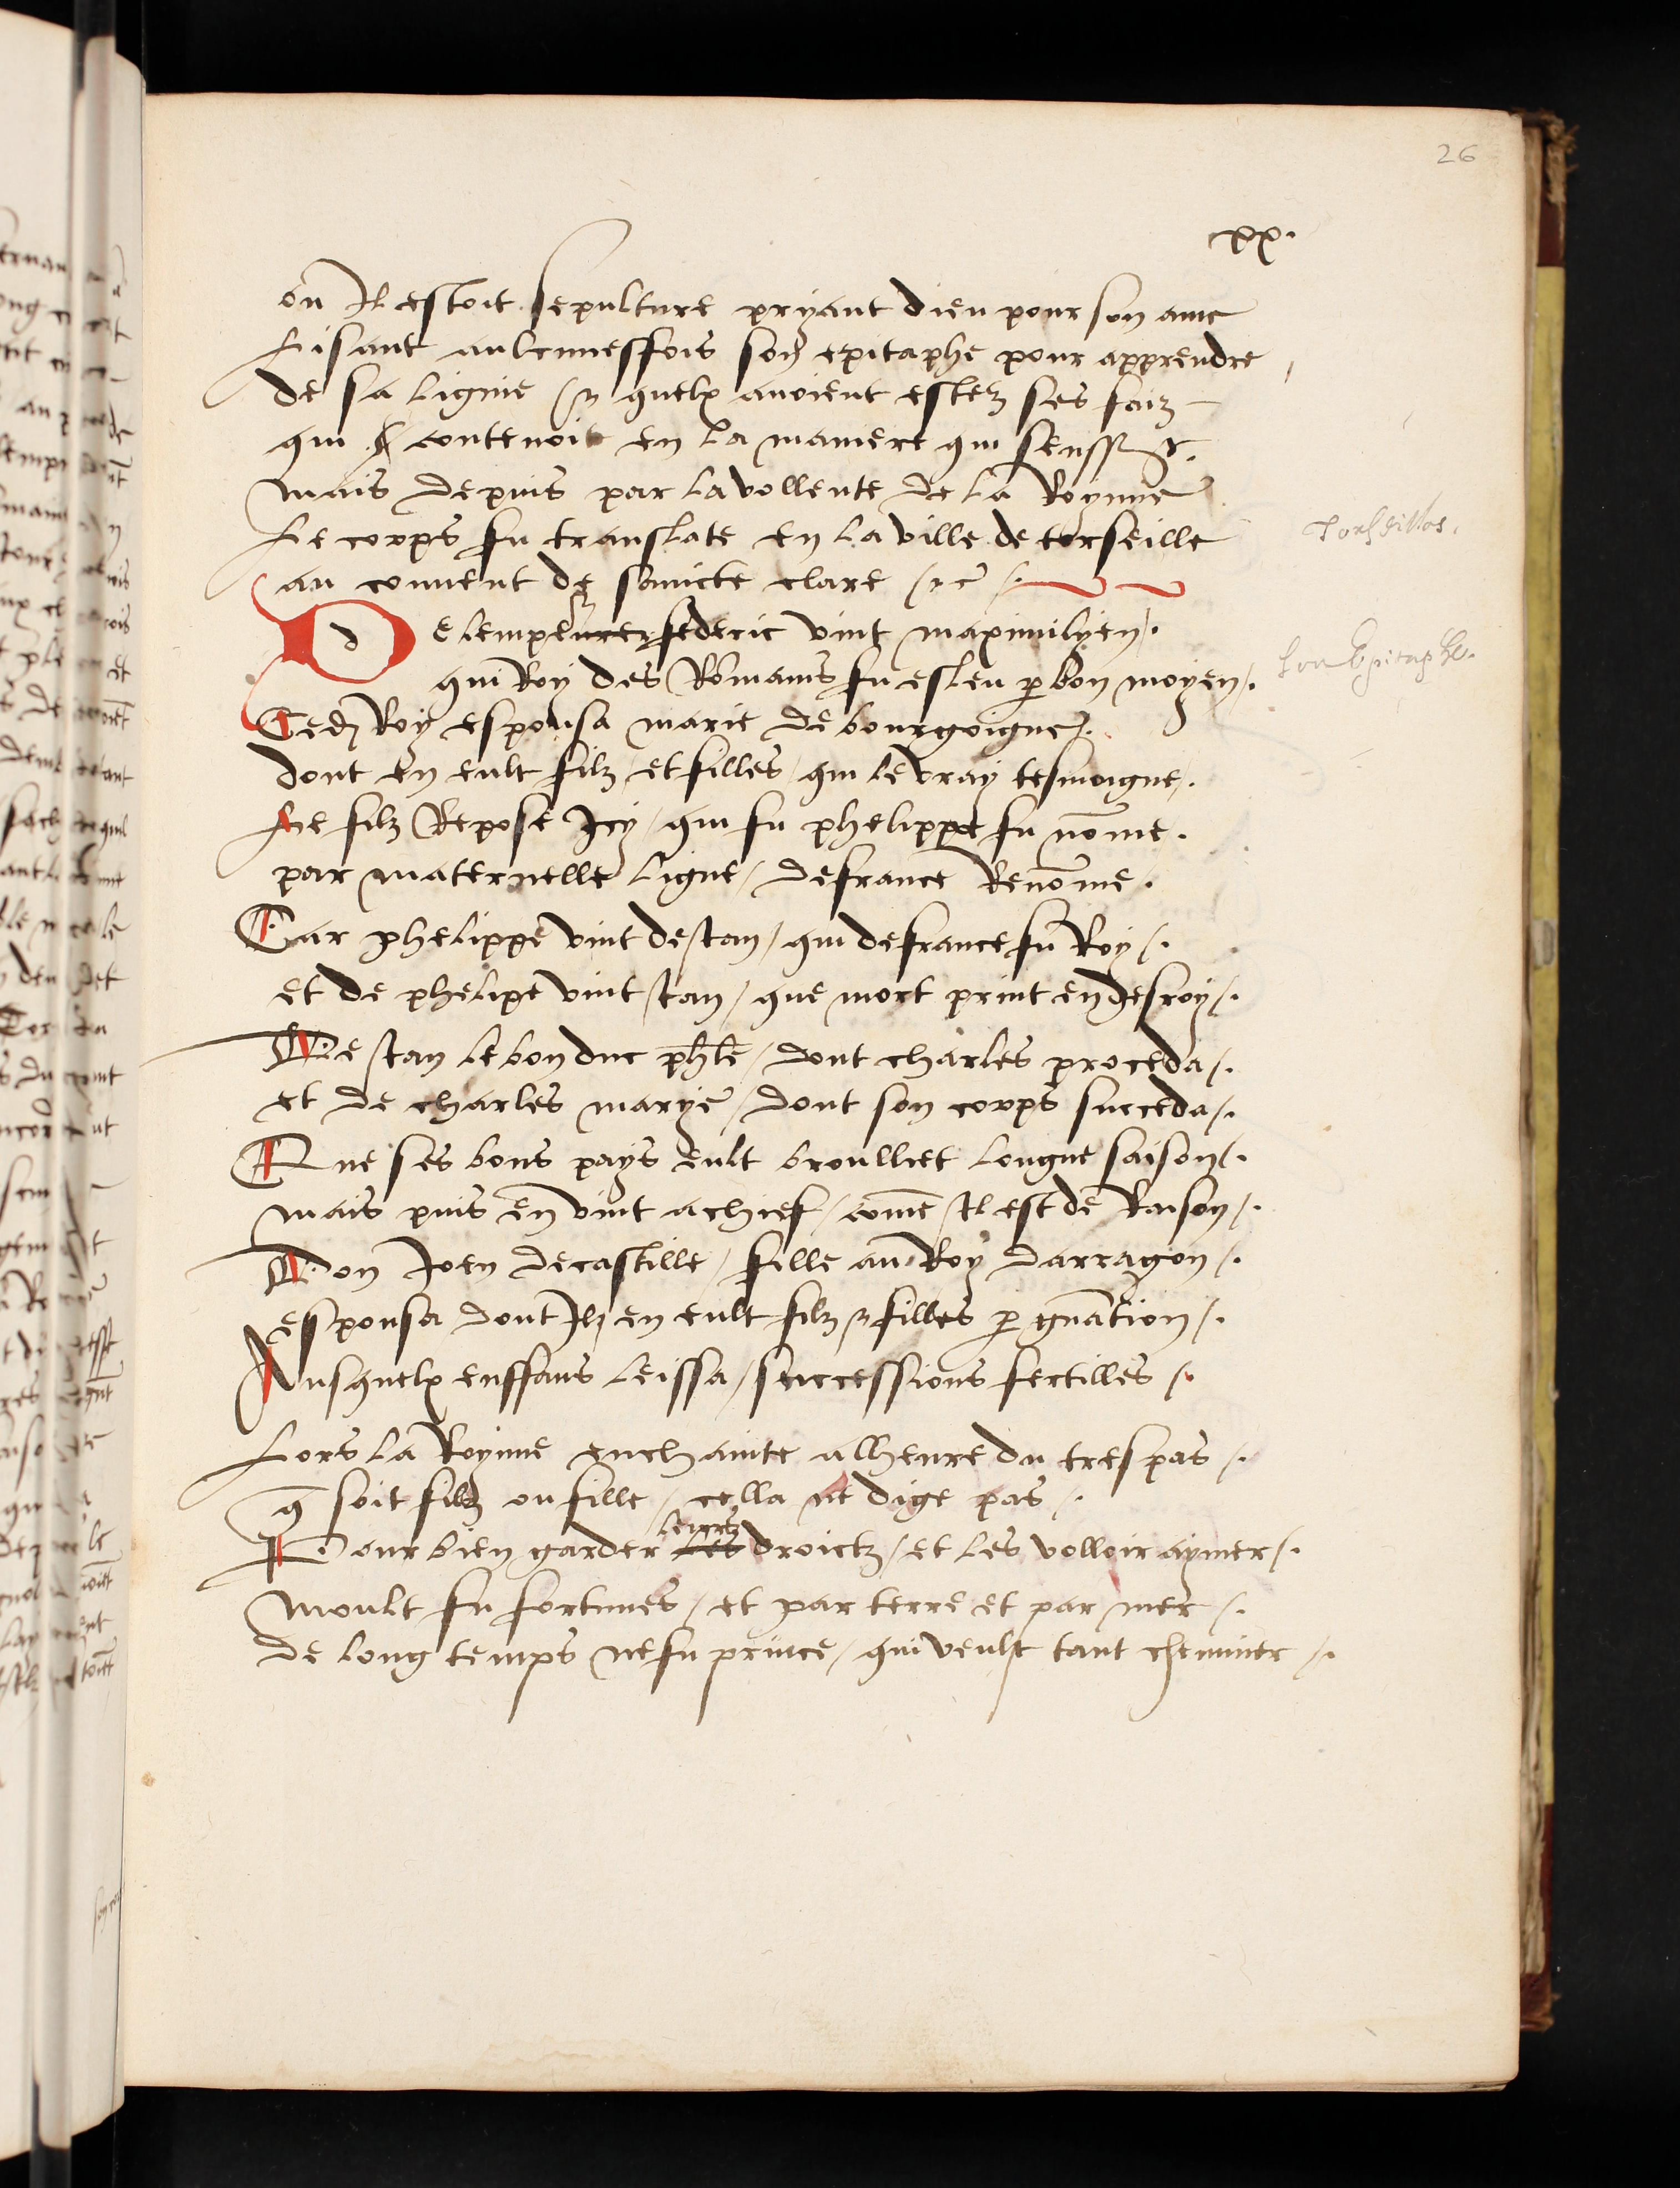 26
xx.
ou Il estoit sepulture pryant dieu pour son ame
Lisant aulcunesfois son epitaphe pour apprendre
de sa lignie et quelx avoient estez ses faiz
qui contenoit en la maniere qui senssuit.
mais depuis par la vollente de la Roynne
Le corps fu translate en la ville de torseille
au couvent de saincte clare etc /.
De lempereur federic vint maximilyen /.
qui Roy des Romains fu esleu p bon moyen /.
Ced Roy espousa marie de bourgoigne /.
dont en eult filz / et filles / qui le vray tesmoigne /.
Le filz Repose Icy / qui fu phelippe fu nōme .
par maternelle ligne / de france Renōme .
Car phelippe vint de Ian / qui de france fu Roy /.
et de phelipe vint Ian / que mort print en desroy /.
De Ian le bon duc phle / dont charles proceda /.
et de charles marye / dont son corps succeda /.
Que ses bons pays eult broulliet longue saison /.
mais puis en vint a chief / come Il est de Raison /.
Don Joen de castille / fille au Roy darragon /.
espousa dont Ilz en eult filz et filles p gnation /.
Ausquelx enffans leissa / successions fertilles /.
Lors la Roynne enchainte a lheure du trespas /.
q soit filz ou fille / cella ne dige pas /.
Pour bien garder les leurs droictz / et les volloir aymer /.
moult fu fortunes / et par terre et par mer /.
de long temps ne fu prince / qui veult tant cheminer /.
Torsillas.
son Epitaphe.